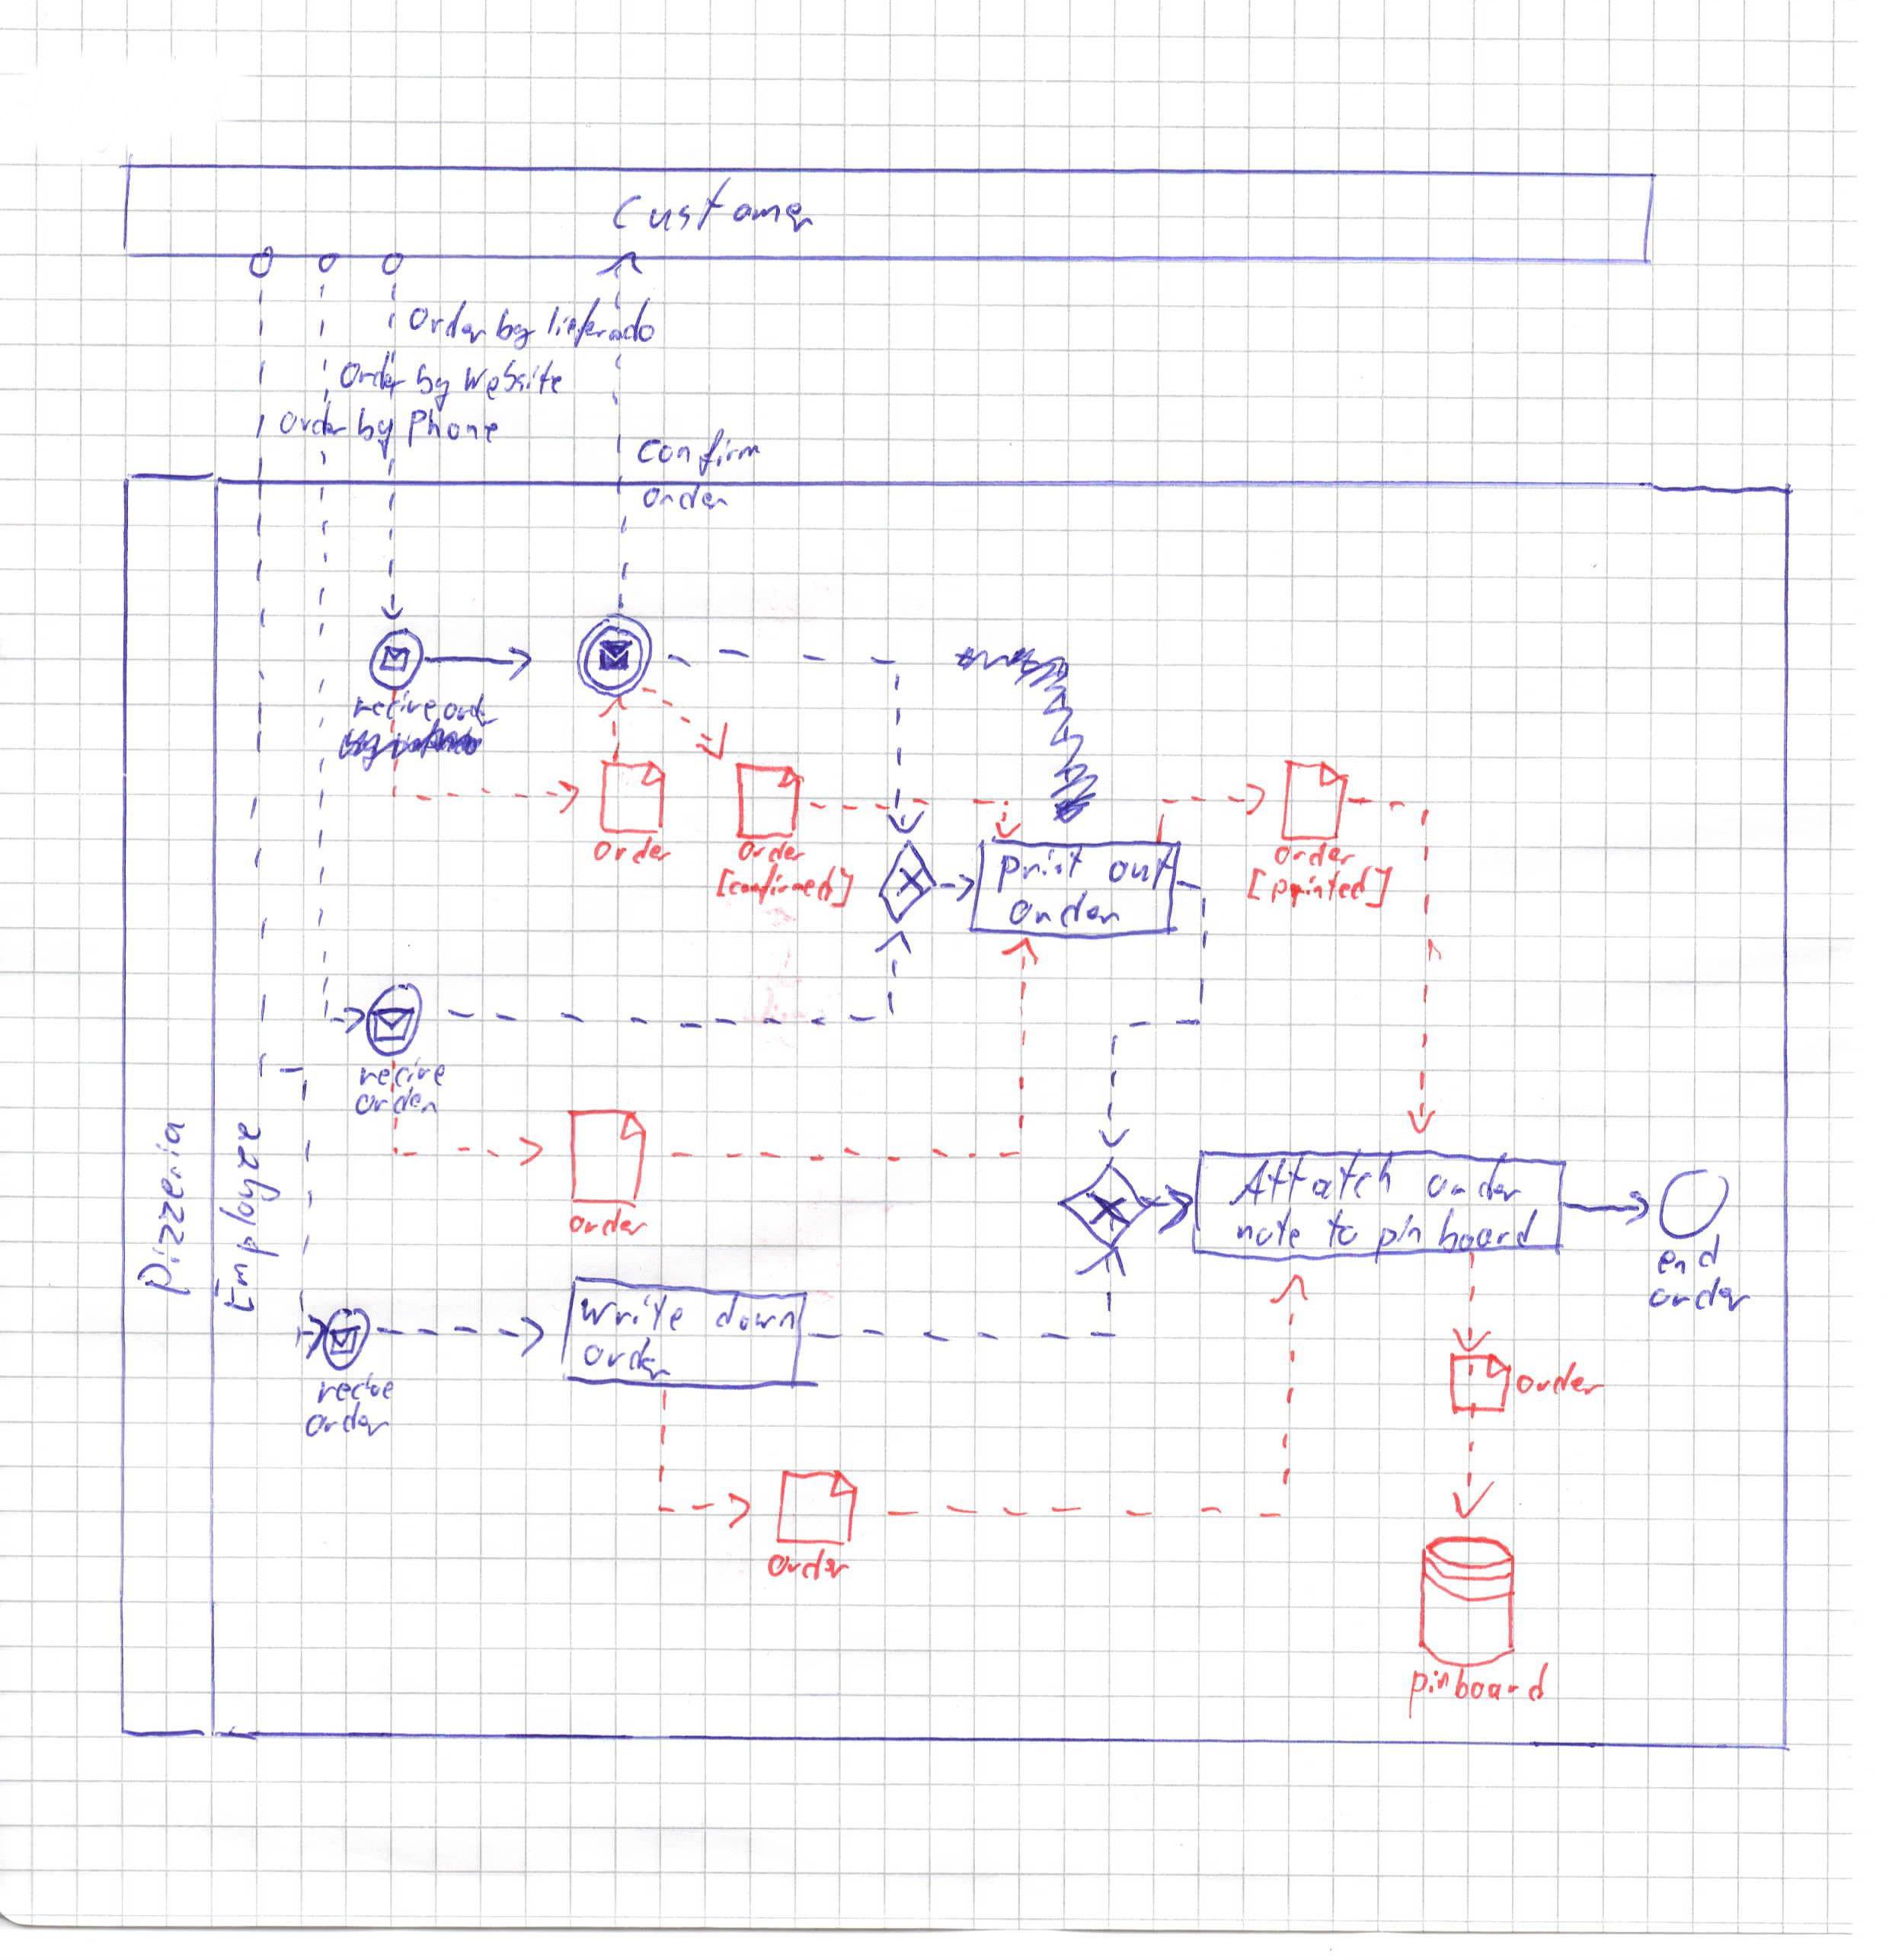 Customer
Order by lieferado
Order by Website
Order by Phone
confirm
order
recive order
order
order
[confirmed]
print out
order
order
[printed]
recive
order
order
Pizzeria
Employee
Attatch order
note to pin board
end
order
write down
order
recive
order
order
order
pinboard